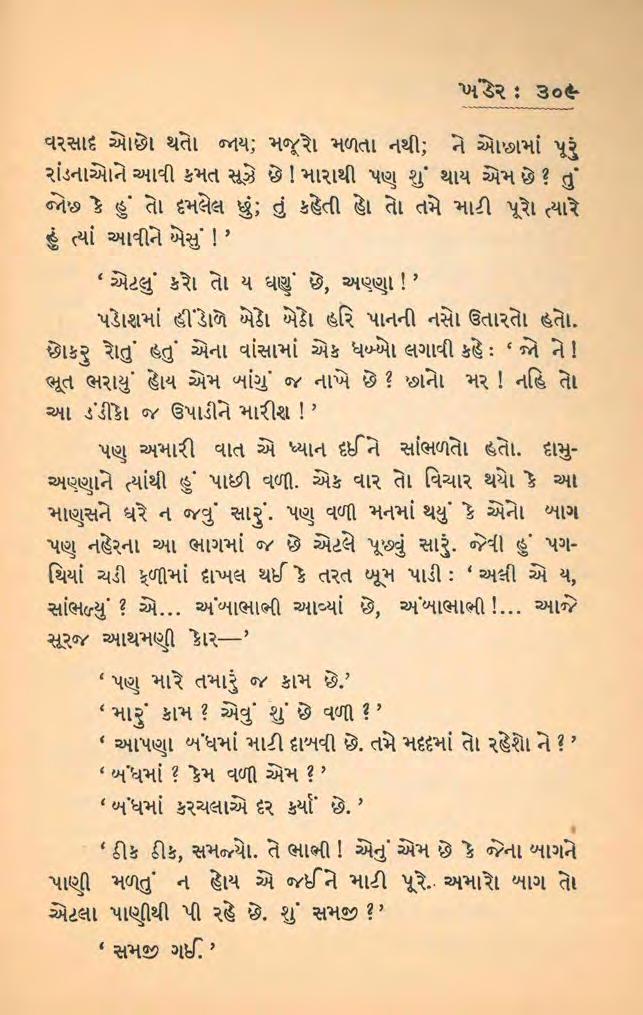 ખંડેર : ૩૦૯
વરસાદ ઓછો થતો જાય; મજૂરો મળતા નથી; ને ઓછામાં પૂરું
રાંડનાઓને આવી કમત સૂઝે છે ! મારાથી પણ શું થાય એમ છે ? તું
જોછ કે હું તો દમલેલ છું; તું કહેતી હો તો તમે માટી પૂરો ત્યારે
હું ત્યાં આવીને બેસું ! ’
‘ એટલું કરો તો ય ઘણું છે, અણ્ણા ! ’
પડોશમાં હીંડોળે બેઠો બેઠો હરિ પાનની નસો ઉતારતો હતો.
છોકરુ રોતું હતું એના વાંસામાં એક ધબ્બો લગાવી કહે : ‘ જો ને !
ભૂત ભરાયું હોય એમ બાંગું જ નાખે છે ? છાનો મર ! નહિ તો
આ ડંડીકો જ ઉપાડીને મારીશ ! ’
પણ અમારી વાત એ ધ્યાન દઈને સાંભળતો હતો. દામુ-
અણ્ણાને ત્યાંથી હું પાછી વળી. એક વાર તો વિચાર થયો કે આ
માણસને ઘરે ન જવું સારું. પણ વળી મનમાં થયું કે એનો બાગ
પણ નહેરના આ ભાગમાં જ છે એટલે પૂછવું સારું. જેવી હું પગ-
થિયાં ચડી ફળીમાં દાખલ થઈ કે તરત બૂમ પાડી : ‘ અલી એ ય,
સાંભળ્યું ? એ... અંબાભાભી આવ્યાં છે, અંબાભાભી !... આજે
સૂરજ આથમણી કોર—’
‘ પણ મારે તમારું જ કામ છે.’
‘ મારું કામ ? એવું શું છે વળી ? ’
‘ આપણા બંધમાં માટી દાબવી છે. તમે મદદમાં તો રહેશો ને ? ’
‘ બંધમાં ? કેમ વળી એમ ? ’
‘ બંધમાં કરચલાએ દર કર્યાં છે. ’
‘ ઠીક ઠીક, સમજ્યો. તે ભાભી ! એનું એમ છે કે જેના બાગને
પાણી મળતું ન હોય એ જઈને માટી પૂરે. અમારો બાગ તો
એટલા પાણીથી પી રહે છે. શું સમજી ? ’
‘ સમજી ગઈ. ’